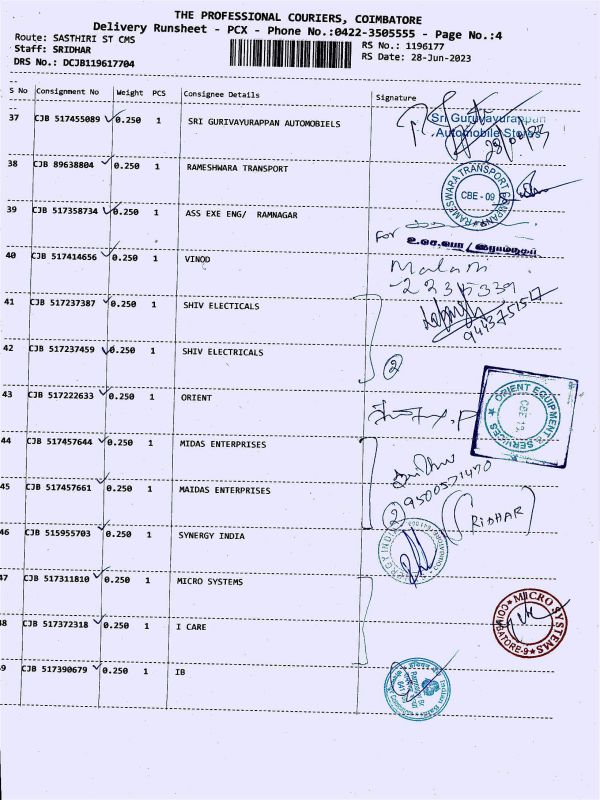 THE PROFESSIONAL COURIERS, COIMBATORE
Delivery Runsheet - PCX - Phone No.:0422-3505555 - Page No.:4
Route: SASTHIRI ST CMS
Staff: SRIDHAR
RS No.: 1196177
DRS No.: DCJB119617704
RS Date: 28-Jun-2023
S No Consignment No Weight PCS Consignee Details Signature
37 CJB 517455089 0.250 1 SRI GURIVAYURAPPAN AUTOMOBIELS
Sri Guruvayurappan
Automobile Stores
38 CJB 89638804 0.250 1 RAMESHWARA TRANSPORT
RAMESWARA TRANSPORT COMPANY
CBE - 09
39 CJB 517358734 0.250 1 ASS EXE ENG/ RAMNAGAR
For
40 CJB 517414656 0.250 1 VINOD
41 CJB 517237387 0.250 1 SHIV ELECTICALS
9443751517
42 CJB 517237459 0.250 1 SHIV ELECTRICALS
2
43 CJB 517222633 0.250 1 ORIENT
ORIENT EQUIPMENT & SERVICES
44 CJB 517457644 0.250 1 MIDAS ENTERPRISES
9500571470
45 CJB 517457661 0.250 1 MAIDAS ENTERPRISES
2
(SRIDHAR)
46 CJB 515955703 0.250 1 SYNERGY INDIA
47 CJB 517311810 0.250 1 MICRO SYSTEMS
MICRO SYSTEMS
COIMBATORE-9
48 CJB 517372318 0.250 1 I CARE
49 CJB 517390679 0.250 1 IB